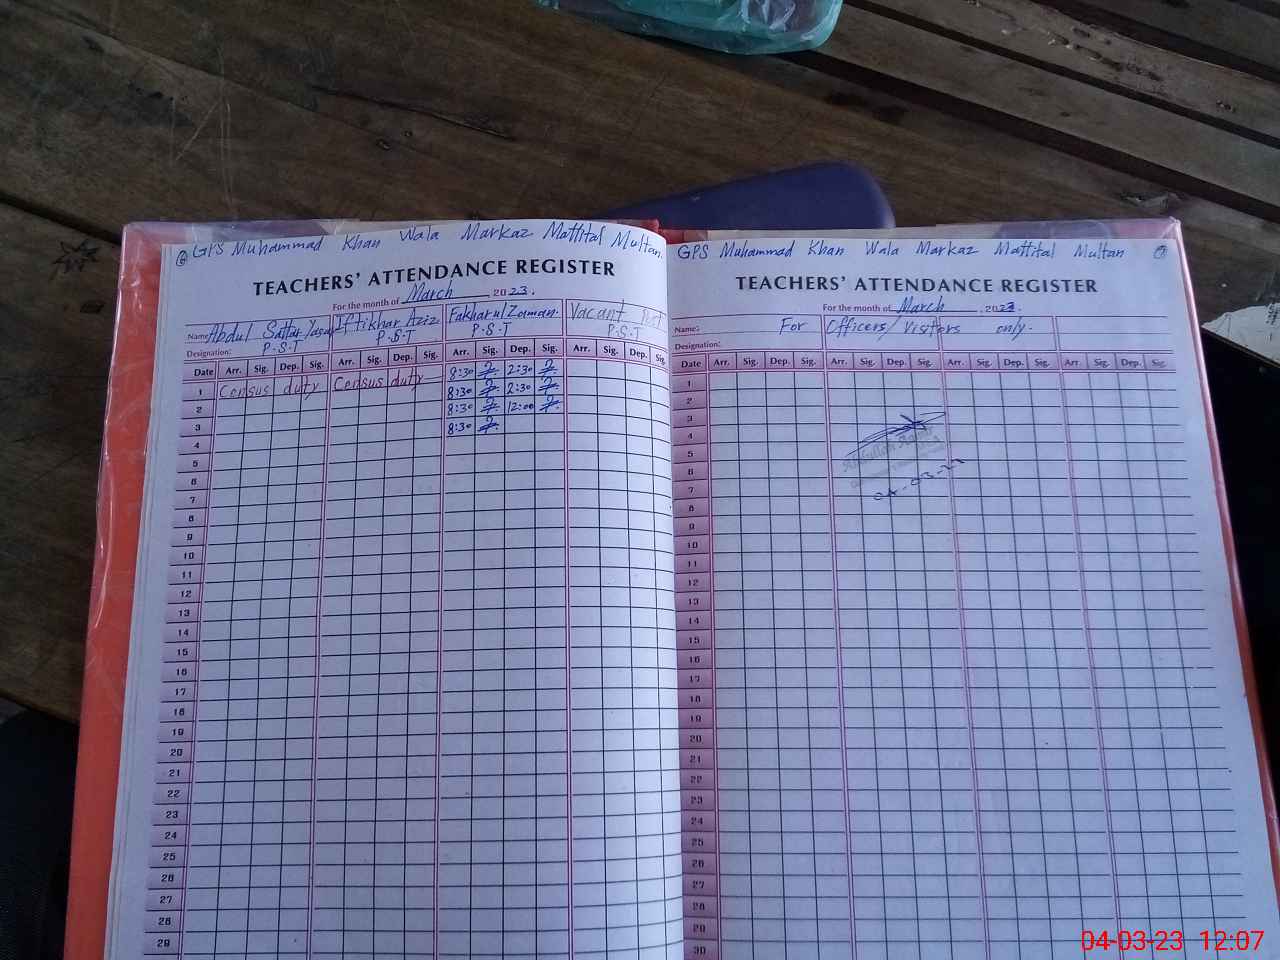 6 GPS Muhammad Khan Wala Markaz Mattital Multan.
TEACHERS' ATTENDANCE REGISTER
For the month of March 2023.
Name: Abdul Sattar Iftikhar Aziz Fakharul Zaman. Vacant Post
Designation: P.S.T P.S.T P.S.T P.S.T
Date Arr. Sig. Dep. Sig. Arr. Sig. Dep. Sig. Arr. Sig. Dep. Sig. Arr. Sig. Dep. Sig.
1 Census duty Census duty 8:30 2:30
2 8:30 2:30
3 8:30 12:00
4 8:30
5
6
7
8
9
10
11
12
13
14
15
16
17
18
19
20
21
22
23
24
25
26
27
28
29
GPS Muhammad Khan Wala Markaz Mattital Multan
TEACHERS' ATTENDANCE REGISTER
For the month of March, 2023.
Name: For Officers/Visitors only.
Designation:
Date Arr. Sig. Dep. Sig. Arr. Sig. Dep. Sig. Arr. Sig. Dep. Sig. Arr. Sig. Dep. Sig.
1
2
3
4
5
6
7
8
9
10
11
12
13
14
15
16
17
18
19
20
21
22
23
24
25
26
27
28
29
30
04-03-23 12:07